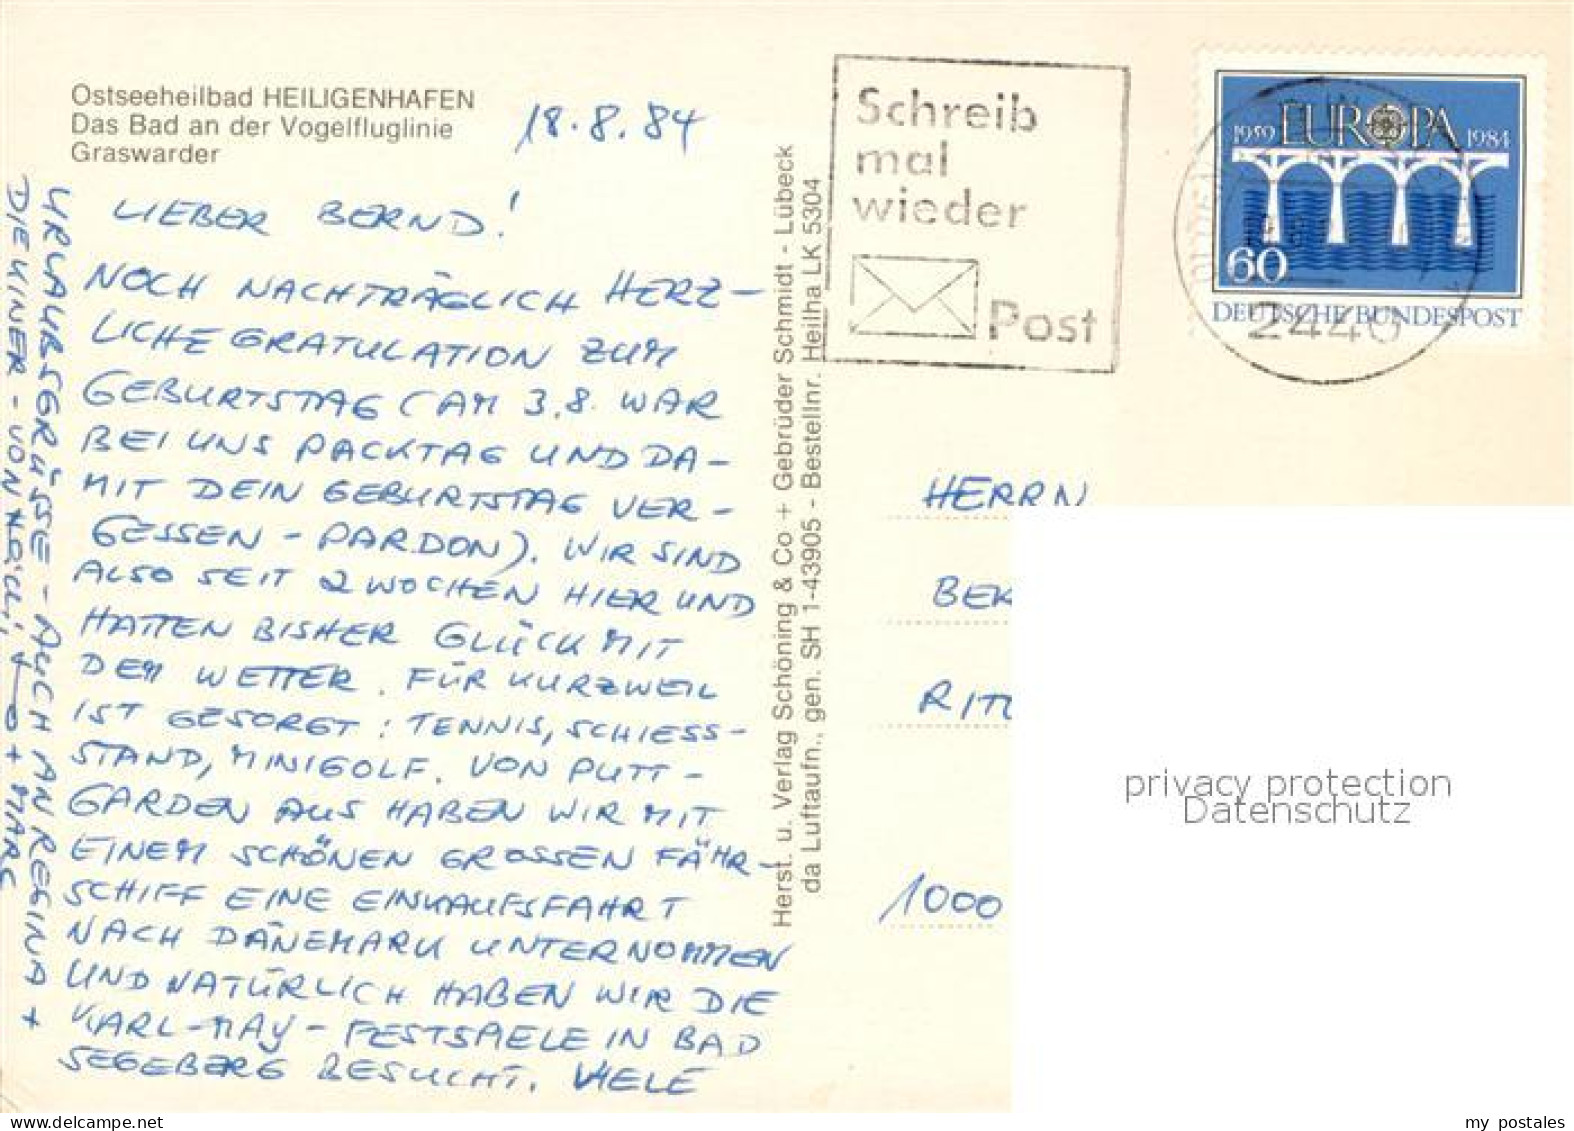 Ostseeheilbad HEILIGENHAFEN
Das Bad an der Vogelfluglinie
Graswarder
18.8.84
LIEBER BERND!
NOCH NACHTRÄGLICH HERZ-
LICHE GRATULATION ZUM
GEBURTSTAG (AM 3.8. WAR
BEI UNS PACKTAG UND DA-
MIT DEIN GEBURTSTAG VER-
GESSEN - PARDON). WIR SIND
ALSO SEIT 2 WOCHEN HIER UND
HATTEN BISHER GLÜCK MIT
DEM WETTER. FÜR KURZWEIL
IST GESORGT: TENNIS, SCHIESS-
STAND, MINIGOLF. VON PUTT-
GARDEN AUS HABEN WIR MIT
EINEM SCHÖNEN GROSSEN FÄHR-
SCHIFF EINE EINKAUFSFAHRT
NACH DÄNEMARK UNTERNOMMEN
UND NATÜRLICH HABEN WIR DIE
KARL-MAY-FESTSPIELE IN BAD
SEGEBERG BESUCHT. VIELE
URLAUBSGRÜSSE - AUCH AN REGINA +
DIE KINER - VON + MARC
Herst. u. Verlag Schöning & Co + Gebrüder Schmidt - Lübeck
da Luftaufn., gen. SH 1-43905 - Bestellnr. Heilha LK 5304
Schreib
mal
wieder
Post
1959 EUROPA 1984
60
DEUTSCHE BUNDESPOST
2440
HERRN
BEK
RIT
1000
privacy protection
Datenschutz
my postales